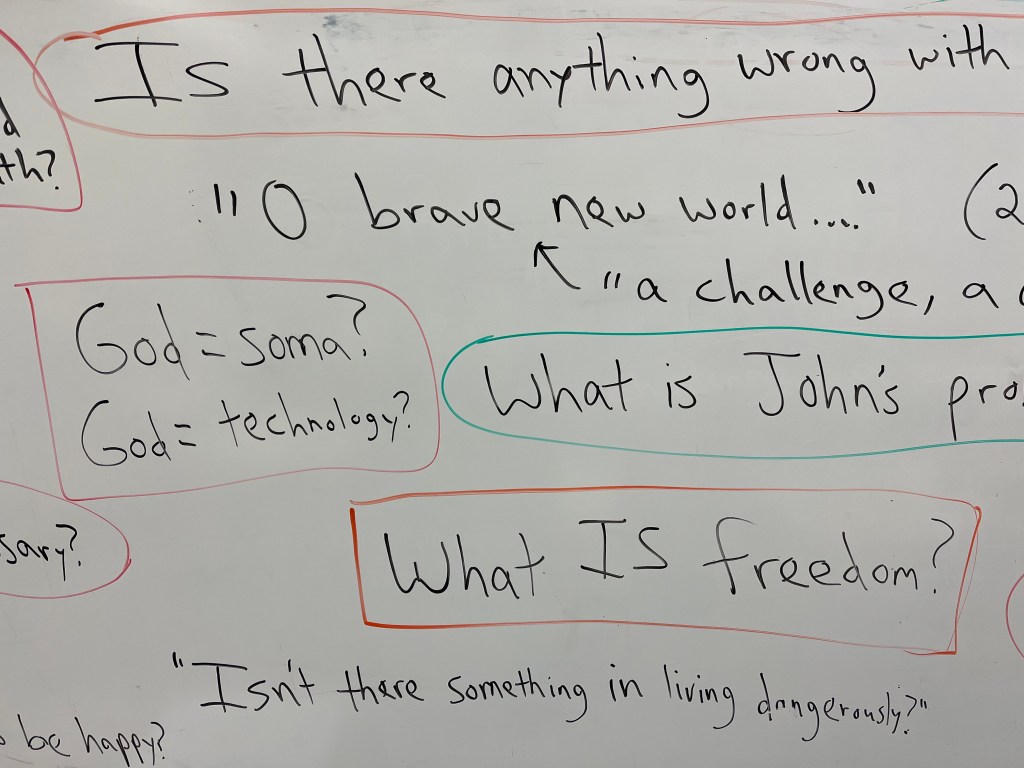 Is there anything wrong with
th?
"O brave new world...." (2
"a challenge, a
God = soma?
God = technology?
What is John's pro
sary?
What IS freedom?
"Isn't there something in living dangerously?"
be happy?